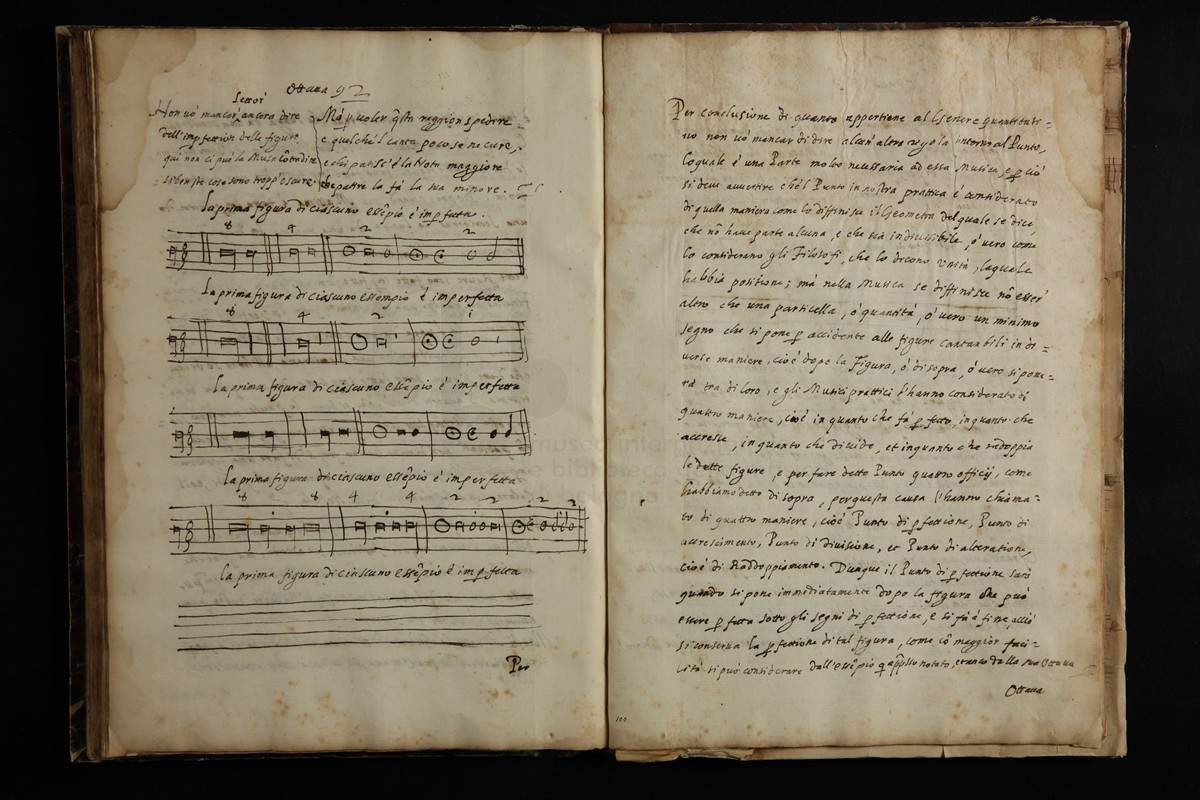 Ottava 92
Lettori
Non vò mancar, ancora dire
dell'impfettion delle figure
qui non ci può la Musa
si ben ste cose sono tropp'escure.
Mà p voler qsta raggion spedire
e quelche l'canta poco se ne cure,
e chi patisc'è la Nota maggiore
che patire la fà la sua minore.
La prima figura di ciascuno essẽpio è impfetta.
8 4 2 2
La prima figura di ciascuno essempio è imperfetta
8 4 2
La prima figura di ciascuno essẽpio è imperfetta
La prima figura di ciascuno essẽpio è imperfetta
8 8 4 4 2 2 2 2
La prima figura di ciascuno essẽpio è impfetta
Per
Per conclusione di quanto appertiene al Genere quantitati=
vo non vò mancar di dire alcun'altra intorno al Punto,
loquale è una Parte molto necessaria ad essa Musica, e p ciò
si deve avvertire che'l Punto in nostra prattica è considerato
di quella maniera come lo diffinisce il Geometra del quale se dice,
che nõ have parte alcuna, e che sia indivisibile, ò vero come
lo considerano gli Filosofi, che lo dicono Unità, laquale
habbia positione; mà nella Musica se diffinisce nõ esser'
altro che una particella, ò quantità, ò vero un minimo
segno che si pone p accidente alle figure cantabili in di=
verse maniere, cioè dopo la Figura, ò di sopra, ò vero si pone=
rà tra di loro, e gli Musici prattici l'hanno considerato di
quattro maniere, cioè in quanto che fà pfetto, inquanto che
accresce, in quanto che divide, et inquanto che radoppia
le dette figure, e per fare detto Punto quattro officij, come
habbiamo detto di sopra, per questa causa l'hanno chiama=
to di quattro maniere, cioè Punto di pfettione, Punto di
accrescimento, Punto di divisione, et Punto di alteratione,
cioè di Raddoppiamento. Dunque il Punto di pfettione sarà
quando si pone immediatamente dopo la figura che può
essere pfetta sotto gli segni di pfettione, e si fà à fine, acciò
si conserva la pfettione di tal figura, come cõ maggior faci=
lità si può considerare dall'essẽpio q appsso notato, dalla sua Ottava
Ottava
100